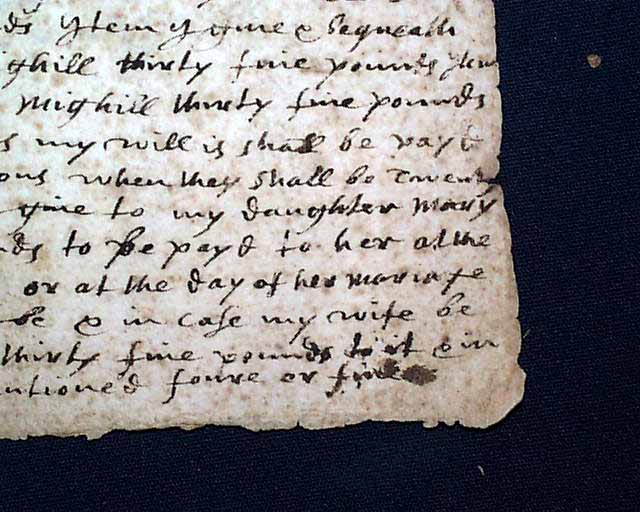 ds ytem I giue & bequeath
ghill thirty fiue pounds ytem
Mighill thirty fiue pounds
s my will is shall be payd
ons when they shall be twenty
giue to my daughter Mary
nds to be payd to her at the
or at the day of her mariage
be & in case my wife be
thirty fiue pounds to it & in
ntioned foure or fiue